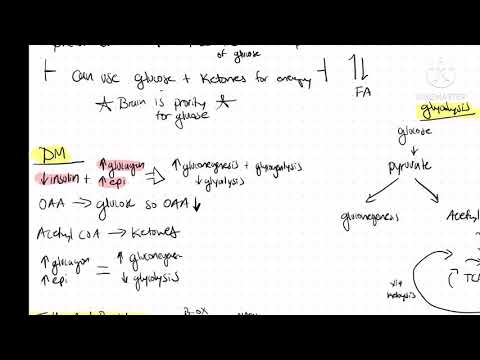 of glucose
Can use glucose + ketones for energy
★ Brain is priority ★
for glucose
FA
glycolysis
glucose
pyruvate
gluconeogenesis
Acetyl
TCA
via
DM
↓ insulin + ↑ glucagon ⇒ ↑ gluconeogenesis + glycogenolysis
↑ epi ↓ glycolysis
OAA → glucose so OAA ↓
Acetyl CoA → Ketones
↑ glucagon = ↑ gluconeogen
↑ epi ↓ glycolysis
β-OX